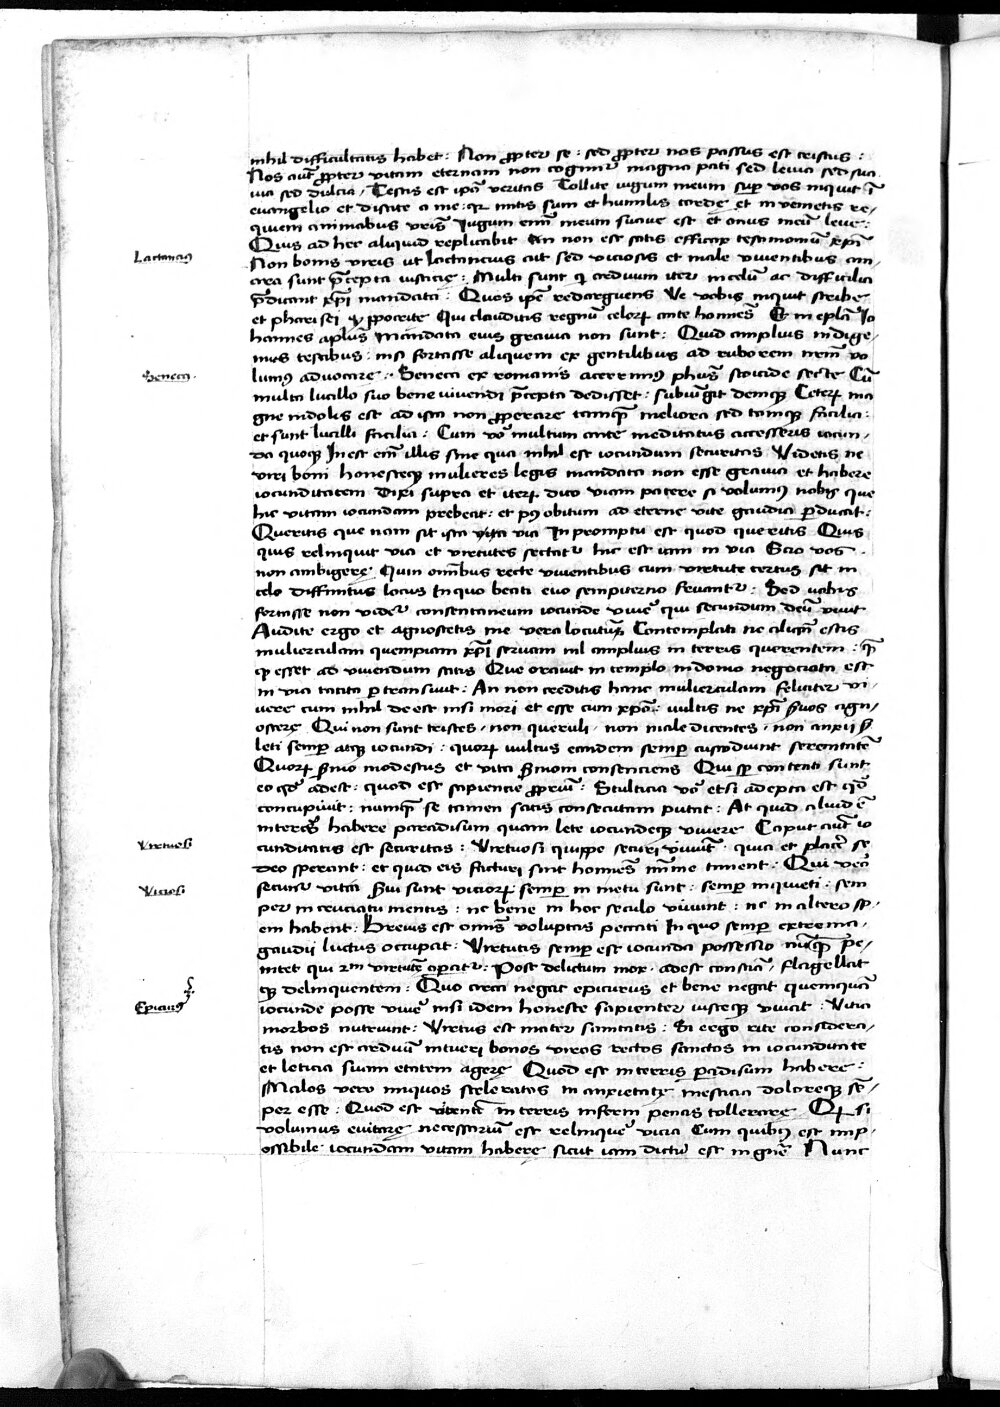 nihil difficultatis habet : Non ꝓpter se : sed ꝓpter nos passus est cristus :
Nos aut̄ ꝓpter vitam eternam non cogimur magna pati sed levia sed sua
via sed dulcia / Testis est ip̄a veritas Tollite iugum meum suꝑ vos inquit ī
evangelio et discite a me : qꝛ mitis sum et humilis corde et invenietis re/
quiem animabus vr̄is Iugum enī meum suave est et onus meū leve :
Quis ad hec aliquid replicabit An non est satis efficax testimoniū xp̄i
Lactancius
Non bonis viris ut lactancius ait sed viciosis et male viventibus am
ara sunt p̄cepta iusticie : Multi sunt qi arduum iter in celū ac difficilia
p̄dicant xp̄i mandata : Quos ip̄e redarguens Ve vobis inquit scribe
et pharisei yppocrite Qui clauditis regnū celoꝝ ante homīes Et in ep̄la Io
hannes apl̄us Mandata eius gravia non sunt : Quid amplius indige
mus testibus : nisi fortasse aliquem ex gentilibus ad ruborem nr̄m vo
Seneca
lumus advocare : Seneca ex romanis acerrimus ph̄us stoicide secte Cū
multa lucillo suo bene vivendi p̄cepta dedisset : subiūgit demqꝫ Ceteꝝ ma
gne indolis est ad ista non ꝓperare tamqꝫ meliora sed tamqꝫ facilia :
et sunt lucilli facilia : Cum vo multum ante meditatus accesseris iocun/
da quoqꝫ Inest enī illis sine qua nihil est iocundum securitas Videtis ne
viri boni honesteqꝫ mulieres legis mandata non esse gravia et habere
iocunditatem Dixi supra et iteꝝ dico viam patere si volumus nobis que
hic vitam iocundam prebeat : et pꝰ obitum ad eterne vite gaudia ꝑducat :
Queritis que nam sit ista vita via In promptu est quod queritis Quis
quis relinquit vicia et virtutes sectatr hic est iam in via Scio vos
non ambigere Quin omībus recte viventibus cum virtute certus sit in
celo diffinitus locus In quo beati evo sempiterno fruantr : Sed vobis
fortasse non videtr consentaneum iocunde vive qui secundum deū vivit
Audite ergo et agnoscetis me vera locutuꝝ Contemplati ne aliqn̄ estis
mulierculam quempiam xp̄i servam nil amplius in terris querentem : qm̄
qꝫ esset ad vivendum satis Que oravit in templo in domo negociata est
in via tacita ꝑtransivit : An non creditis hanc mulierculam feliciter vi/
vere cum nihil deest nisi mori et esse cum xp̄o : vultis ne xp̄i s̄vos agn/
oscere Qui non sunt tristes non queruli non male dicentes non anxii s̄
leti semꝑ atqꝫ iocundi : quoꝝ vultus eandem semꝑ custodiunt serenitatē
Quoꝝ s̄mo modestus et vita s̄moni consenciens Qui sꝑ contenti sunt
eo qd̄ adest : quod est sapiencie ꝓpriū : Stulticia vo etsi adepta est qd̄
concupivit : numqꝫ se tamen satis consecutam putat : At quid aliud ē
in terris habere paradisum quam lete iocundeqꝫ vivere Caput aut̄ io
Virtuosi
cunditatis est securitas : Virtuosi quippe securi vivūt : quia et placē se
deo sperant : et quod eis facturi sint homīes minime timent : Qui vero
Viciosi
securi vitā s̄vi sunt vicioꝝ semꝑ in metu sunt : semꝑ inquieti : sem
per in cruciatu mentis : nec bene in hoc seculo vivunt : nec in altero sp
em habent : Brevis est omīs voluptas peccati In quo semꝑ extrema
gaudii luctus occupat : Virtutis semꝑ est iocunda possessio nūqꝫ pe/
nitet qui virtutē operatr : Post delictum mox adest consciā / flagellat
qꝫ delinquentem : Quo circa negat epicurus et bene negat quemquā
Epicurus
iocunde posse vive nisi idem honeste sapienter iusteqꝫ vivat : Vicia
morbos nutriunt : Virtus est mater sanitatis : Si ergo rite considera/
tis non est arduū intueri bonos viros rectos sanctos in iocunditate
et leticia suam etatem agere Quod est in terris paradisum habere :
Malos vero iniquos sceleratos in anxietate mesticia doloreqꝫ sē/
per esse : Quod est viventē in terris inferni penas tollerare Qꝫ si
volumus evitare necessarium est relinque vicia Cum quibꝰ est imp/
ossibile iocundam vitam habere sicut iam dictū est in gn̄e Nunc